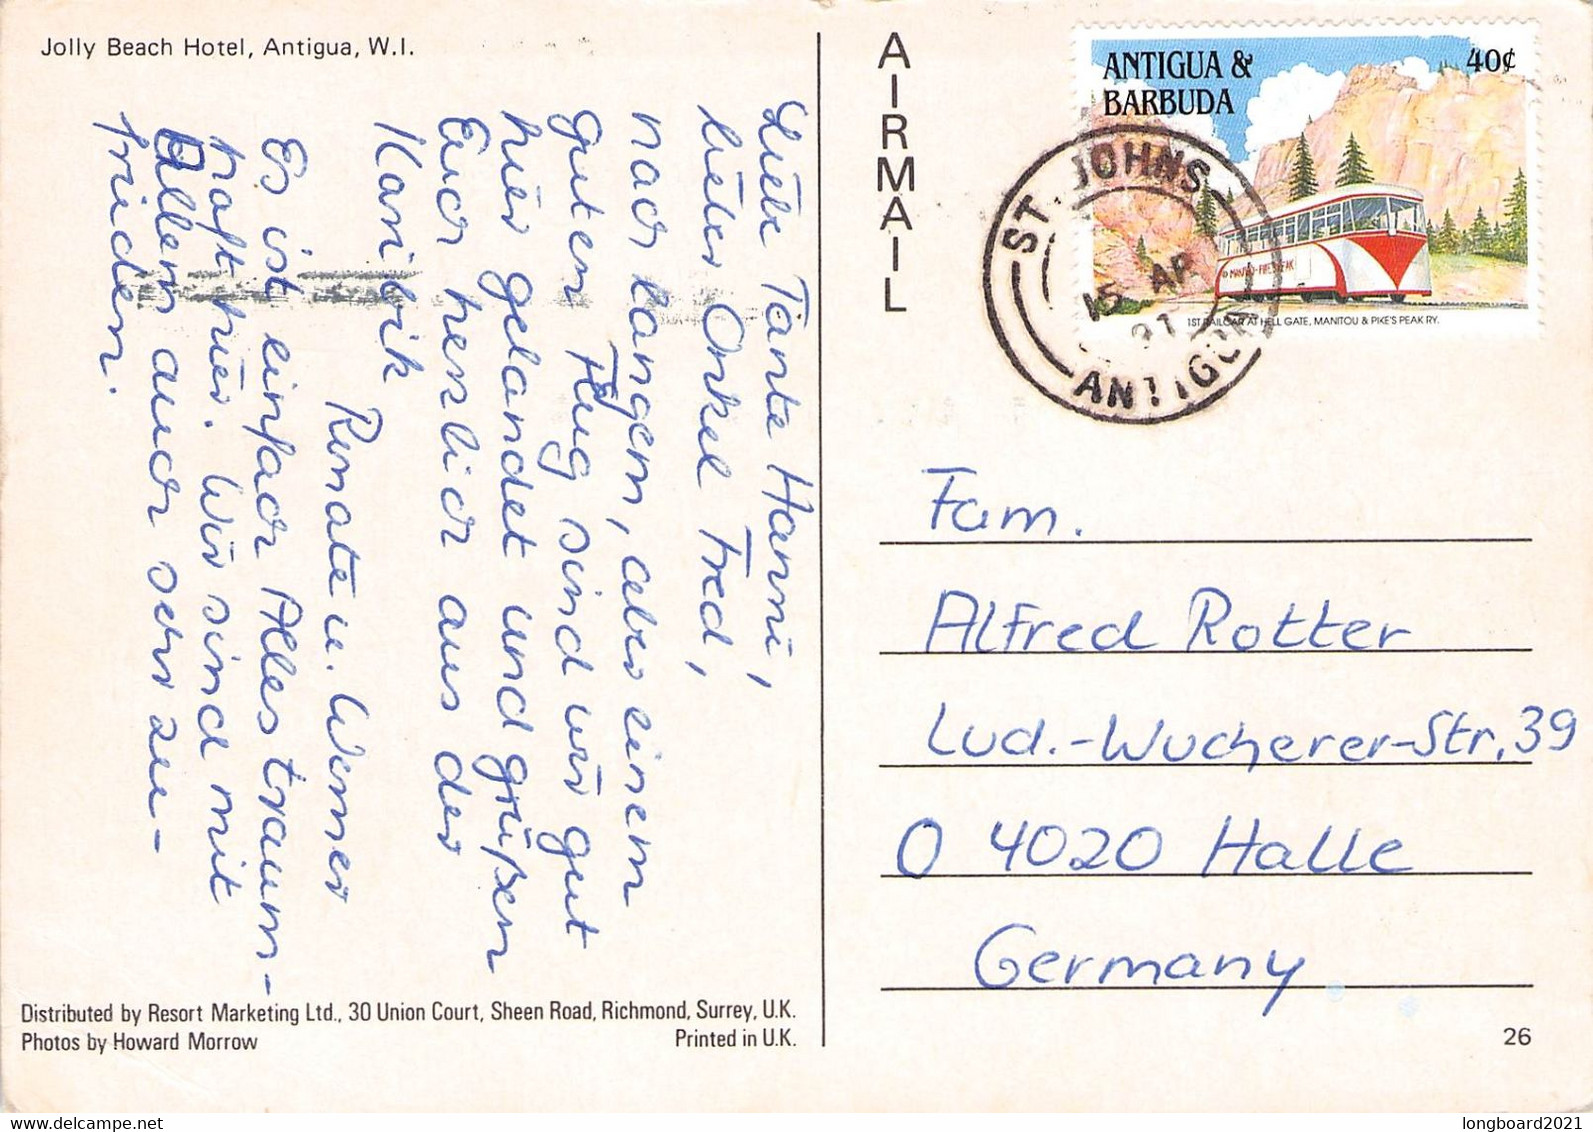 Jolly Beach Hotel, Antigua, W.I.
Liebe Tante Hanni,
lieber Onkel Fred,
nach langem, aber einem
guten Flug sind wir gut
hier gelandet und grüßen
Euch herzlich aus der
Karibik
Renate u. Werner
Es ist einfach Alles traum-
haft hier. Wir sind mit
Allem auch sehr zu-
frieden.
Distributed by Resort Marketing Ltd., 30 Union Court, Sheen Road, Richmond, Surrey, U.K.
Photos by Howard Morrow
Printed in U.K.
AIRMAIL
ANTIGUA &
BARBUDA
40¢
1ST RAILCAR AT HELL GATE, MANITOU & PIKE'S PEAK RY.
ST. JOHNS
15 AP
91
ANTIGUA
Fam.
Alfred Rotter
Lud.-Wucherer-Str. 39
O 4020 Halle
Germany
26
longboard2021